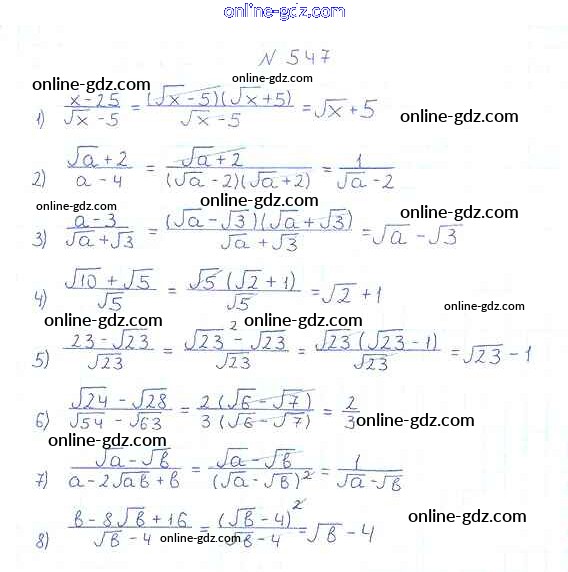 online-gdz.com
N 547
online-gdz.com
online-gdz.com
1) (x-25)/(√x -5) = ((√x -5)(√x +5))/(√x -5) = √x +5
online-gdz.com
online-gdz.com
2) (√a +2)/(a-4) = (√a +2)/((√a -2)(√a +2)) = 1/(√a -2)
online-gdz.com
online-gdz.com
3) (a-3)/(√a +√3) = ((√a -√3)(√a +√3))/(√a +√3) = √a -√3
online-gdz.com
4) (√10 +√5)/√5 = (√5 (√2 +1))/√5 = √2 +1
online-gdz.com
online-gdz.com
online-gdz.com
5) (23-√23)/√23 = (√23² -√23)/√23 = (√23 (√23 -1))/√23 = √23 -1
online-gdz.com
6) (√24 -√28)/(√54 -√63) = (2(√6 -√7))/(3(√6 -√7)) = 2/3
online-gdz.com
online-gdz.com
7) (√a -√b)/(a-2√ab +b) = (√a -√b)/(√a -√b)² = 1/(√a -√b)
online-gdz.com
8) (b-8√b +16)/(√b -4) = (√b -4)²/(√b -4) = √b -4
online-gdz.com
online-gdz.com